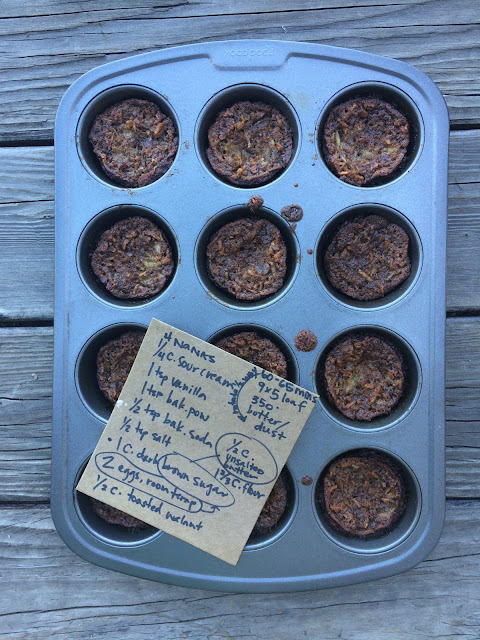 4 NANAS
1/4 C. SOUR CREAM
1 tsp vanilla
1 tsp bak. pow
1/2 tsp bak. soda
1/2 tsp salt
1 C. dark brown sugar
2 eggs, room temp
1/2 C. toasted walnut
60-65 MINS
9x5 loaf
350°
butter/
dust
1/2 C.
unsalted
butter
1 2/3 C. flour